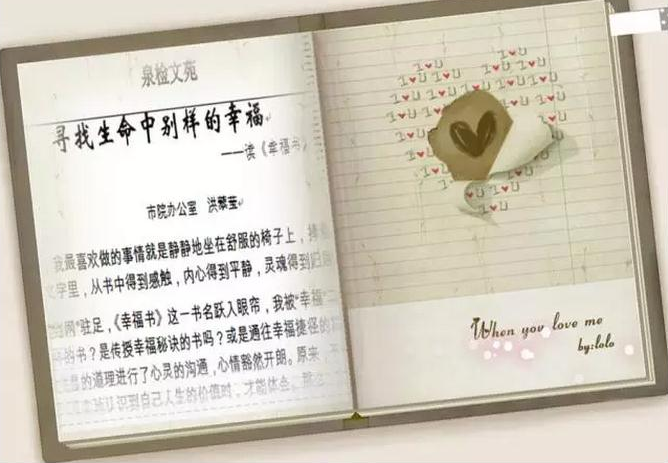 泉检文苑
寻找生命中别样的幸福
——读《幸福书
市院办公室 洪繁莹
我最喜欢做的事情就是静静地坐在舒服的椅子上，
字里，从书中得到感触，内心得到平静，灵魂得到
网”驻足，《幸福书》这一书名跃入眼帘，我被“幸福”
的书？是传授幸福秘诀的书吗？或是通往幸福捷径的
的道理进行了心灵的沟通，心情豁然开朗。原来，
认识到自己人生的价值时，才能体会
I♥U
I♥U I♥U
I♥U I♥U
When you love me
by:lolo